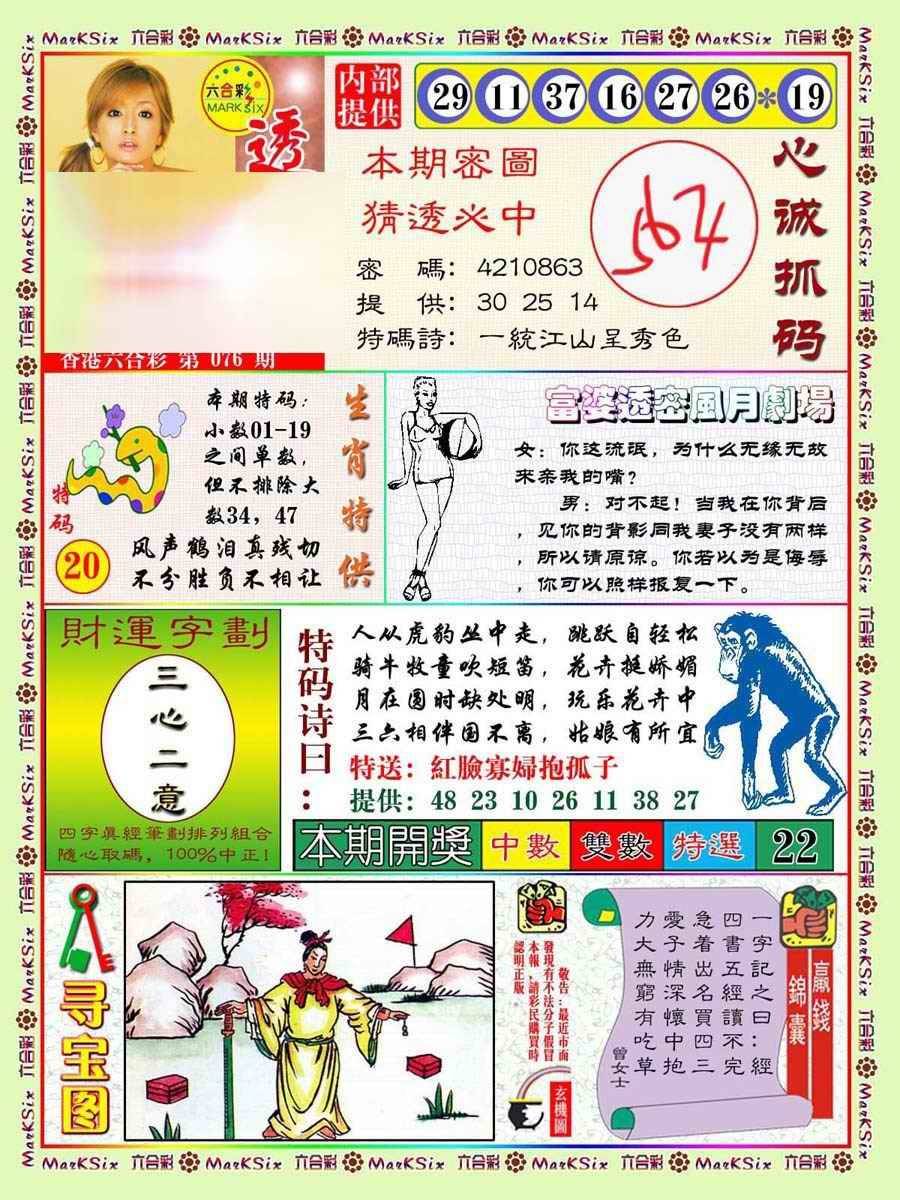 MarKSix 六合彩 MarKSix 六合彩 MarKSix 六合彩 MarKSix 六合彩 MarKSix 六合彩
六合彩
MARK SIX
透
香港六合彩 第 076 期
内部
提供
29 11 37 16 27 26 * 19
本期密圖
猜透必中
密 碼: 4210863
提 供: 30 25 14
特碼詩: 一統江山呈秀色
心诚抓码
特码
20
本期特码:
小数01-19
之间单数,
但不排除大
数34, 47
风声鹤泪真残切
不分胜负不相让
生肖特供
富婆透密風月劇場
女: 你这流氓, 为什么无缘无故
來亲我的嘴?
男: 对不起! 当我在你背后
, 见你的背影同我妻子没有两样
, 所以请原谅。你若以为是侮辱
, 你可以照样报复一下。
財運字劃
三心二意
四字真經筆劃排列組合
隨心取碼, 100%中正!
特码诗曰:
人从虎豹丛中走, 跳跃自轻松
骑牛牧童吹短笛, 花卉挺娇媚
月在圆时缺处明, 玩乐花卉中
三六相伴国不离, 姑娘有所宜
特送: 紅臉寡婦抱孤子
提供: 48 23 10 26 11 38 27
本期開獎 中數 雙數 特選 22
寻宝图
敬告:最近市面
發現有不法分子假冒
本報,請彩民購買時
認明正版。
玄機圖
一字記之曰:經
四書五經讀不完
急着出名買四三
愛子情深懷中抱
力大無窮有吃草
曾女士
贏錢
錦囊
MarKSix 六合彩 MarKSix 六合彩 MarKSix 六合彩 MarKSix 六合彩 MarKSix 六合彩